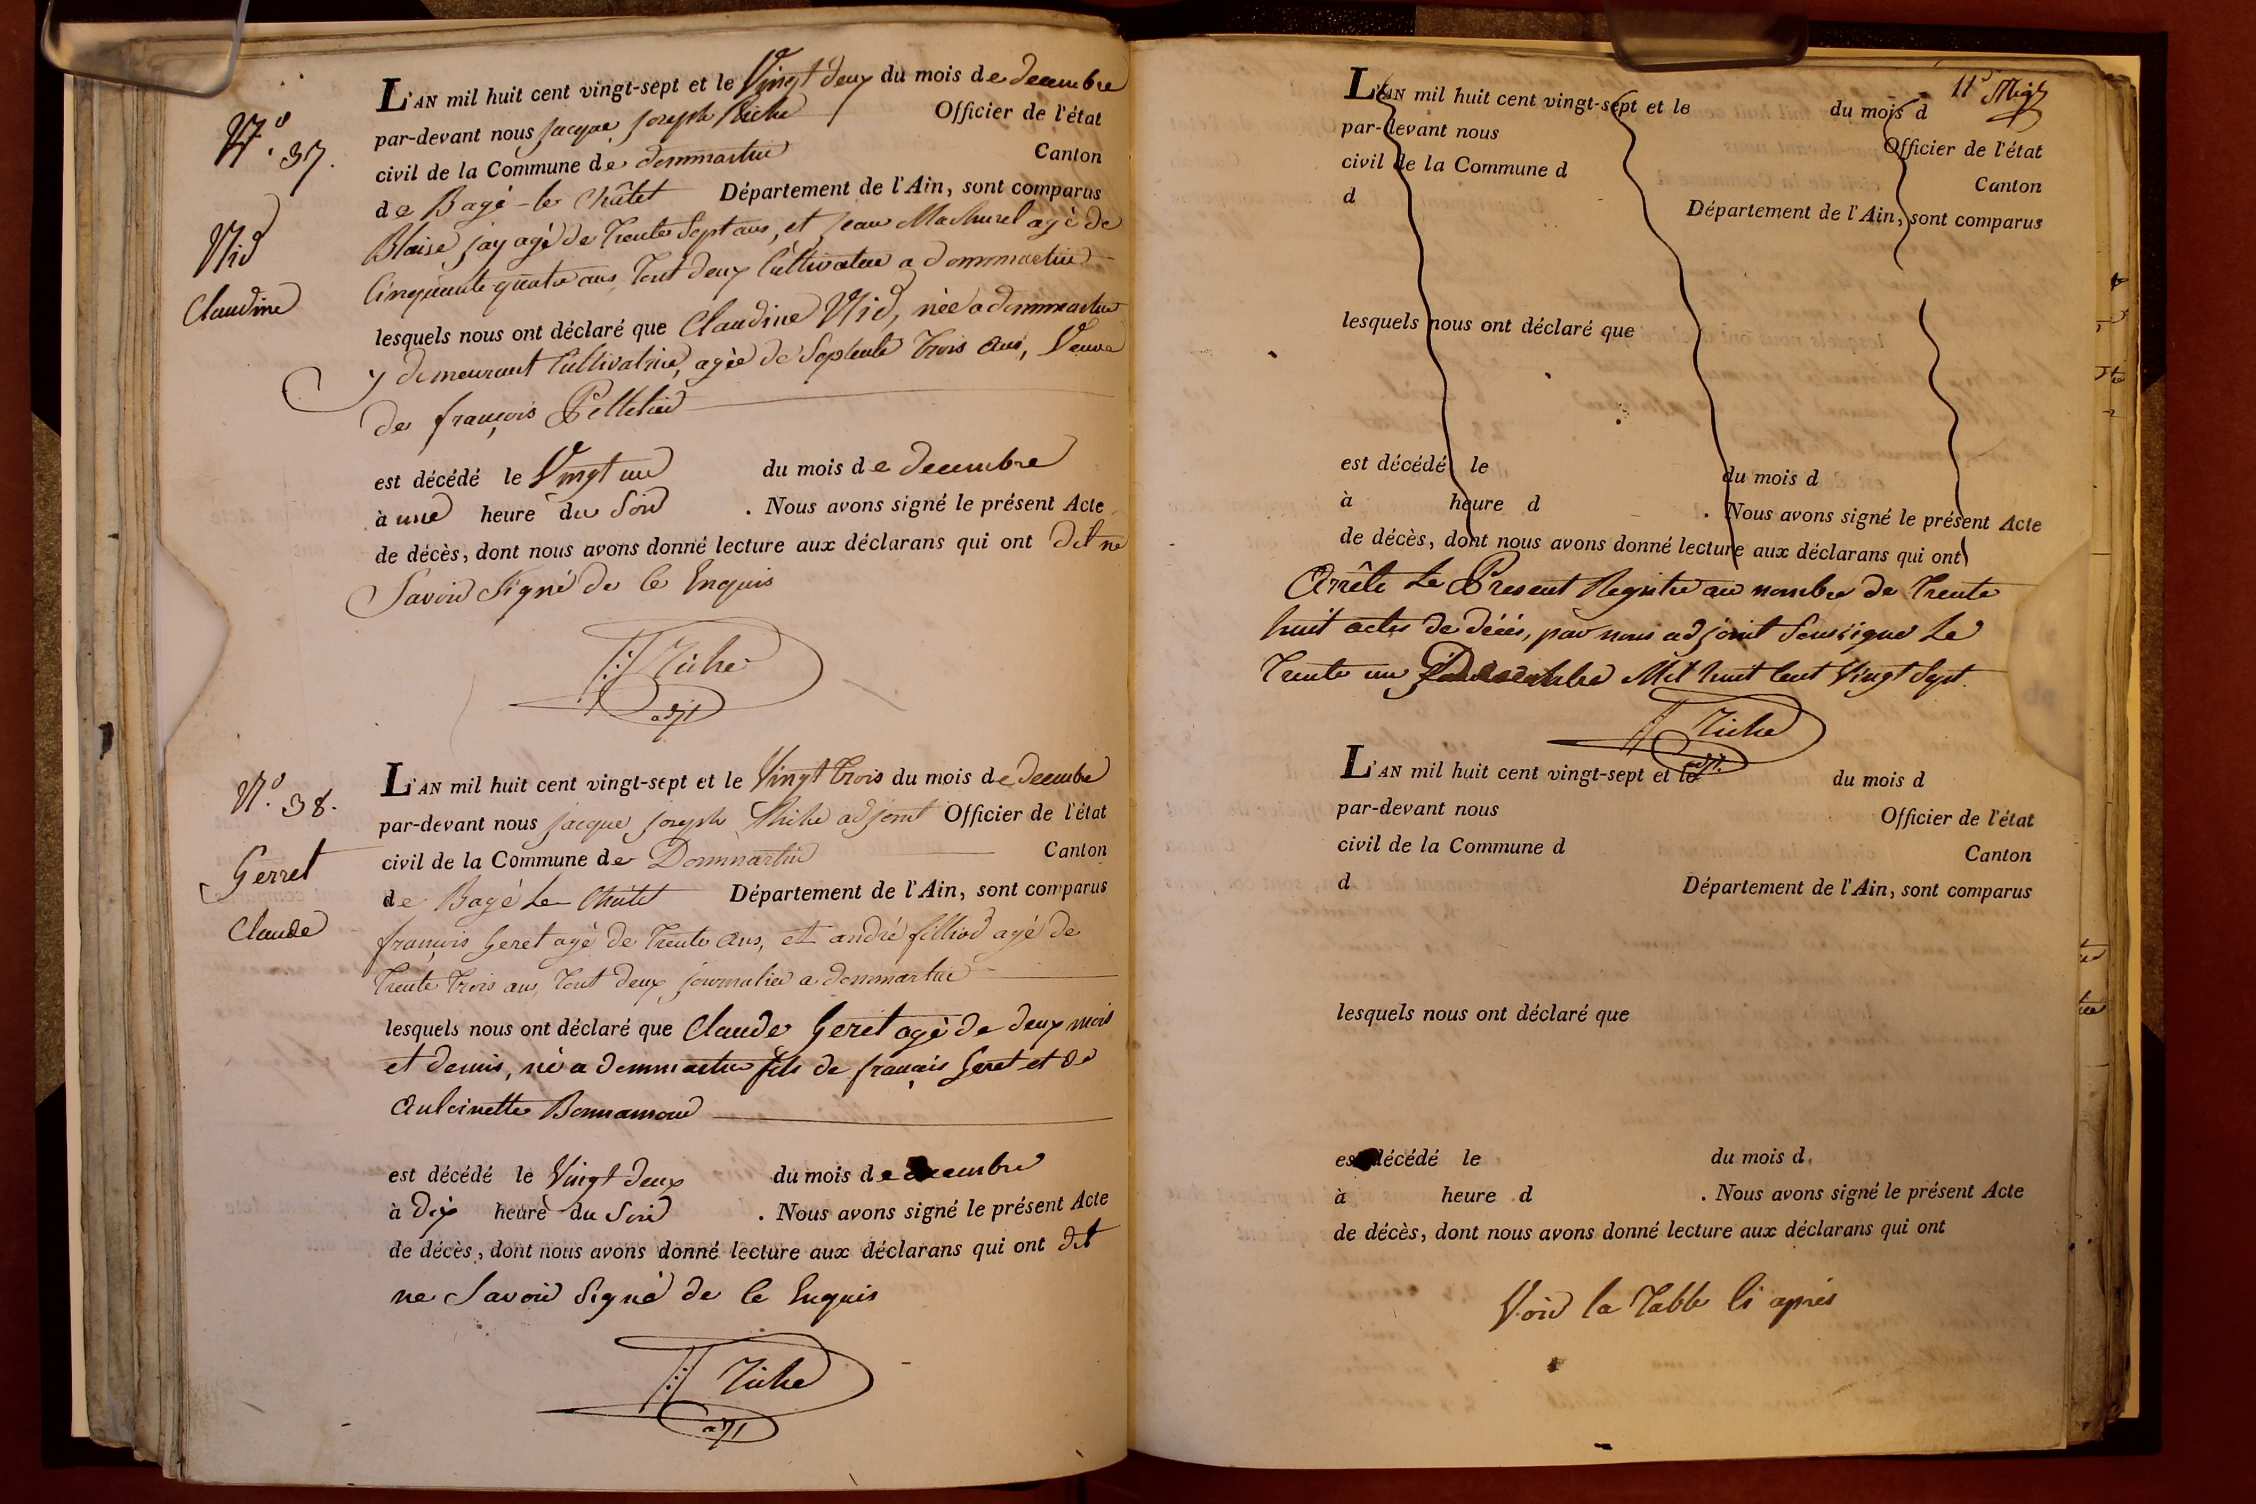 N.o 37.
Nid
Claudine
L'AN mil huit cent vingt-sept et le Vingt deux du mois de decembre
par-devant nous jacque joseph Riche Officier de l'état
civil de la Commune de dommartin Canton
de Bagé-le Châtel Département de l'Ain, sont comparus
Blaise jay agé de trente Sept ans, et jean Machurel agé de
Cinquante quatre ans, tout deux Cultivateur a dommartin
lesquels nous ont déclaré que Claudine Nid, née a dommartin
y demeurant Cultivatrice, agée de Soptente trois ans, Veuve
de françois Pelletier
est décédé le Vingt un du mois de decembre
à une heure du Soir . Nous avons signé le présent Acte
de décès, dont nous avons donné lecture aux déclarans qui ont dit ne
Savoir Signé de ce Enquis
Riche
adjt
N.o 38.
Gerret
Claude
L'AN mil huit cent vingt-sept et le Vingt trois du mois de decembre
par-devant nous jacque joseph Riche adjoint Officier de l'état
civil de la Commune de Dommartin Canton
de Bagé Le Châtel Département de l'Ain, sont comparus
françois Geret agé de trente ans, et andré filliod agé de
trente trois ans, tout deux journalier a dommartin
lesquels nous ont déclaré que Claude Geret agé de deux mois
et demis, né a dommartin fils de français Geret et de
Antoinette Bonnamour
est décédé le Vingt deux du mois de decembre
à dix heure du Soir . Nous avons signé le présent Acte
de décès, dont nous avons donné lecture aux déclarans qui ont dit
ne Savoir Signé de ce Enquis
Riche
adjt
11e
L'AN mil huit cent vingt-sept et le du mois d
par-devant nous Officier de l'état
civil de la Commune d Canton
d Département de l'Ain, sont comparus
lesquels nous ont déclaré que
est décédé le du mois d
à heure d . Nous avons signé le présent Acte
de décès, dont nous avons donné lecture aux déclarans qui ont
Arrêté Le Present Registre au nombre de trente
huit actes de décés, par nous adjoint Soussigné Le
trente un Decembre Mil huit Cent Vingt Sept.
Riche
adjt.
L'AN mil huit cent vingt-sept et le du mois d
par-devant nous Officier de l'état
civil de la Commune d Canton
d Département de l'Ain, sont comparus
lesquels nous ont déclaré que
est décédé le du mois d
à heure d . Nous avons signé le présent Acte
de décès, dont nous avons donné lecture aux déclarans qui ont
Voir la Table Ci après